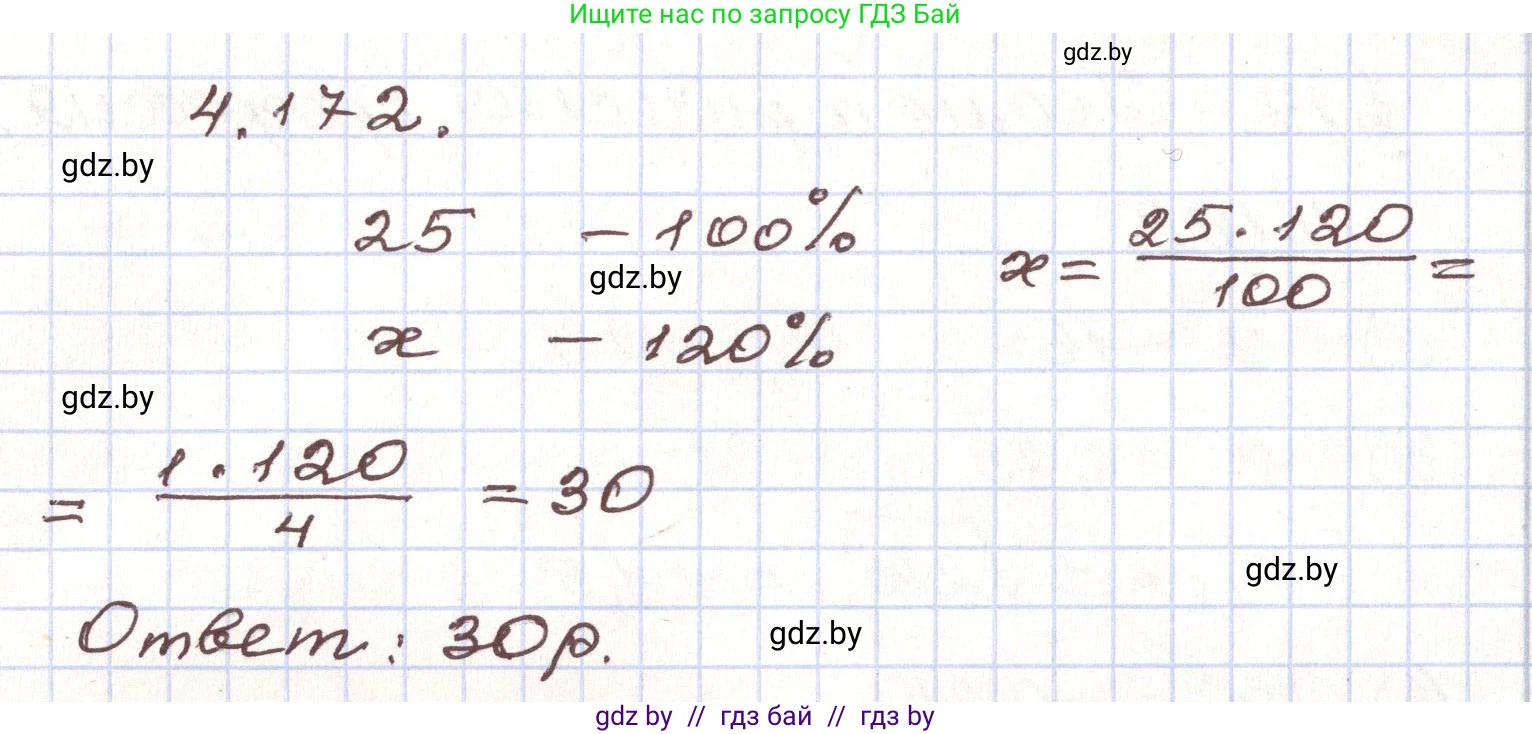 Ищите нас по запросу ГДЗ Бай
gdz.by
4.172.
gdz.by
25 – 100%
x = 25·120/100 =
gdz.by
x – 120%
gdz.by
= 1·120/4 = 30
gdz.by
Ответ: 30р.
gdz.by
gdz by // гдз бай // гдз by